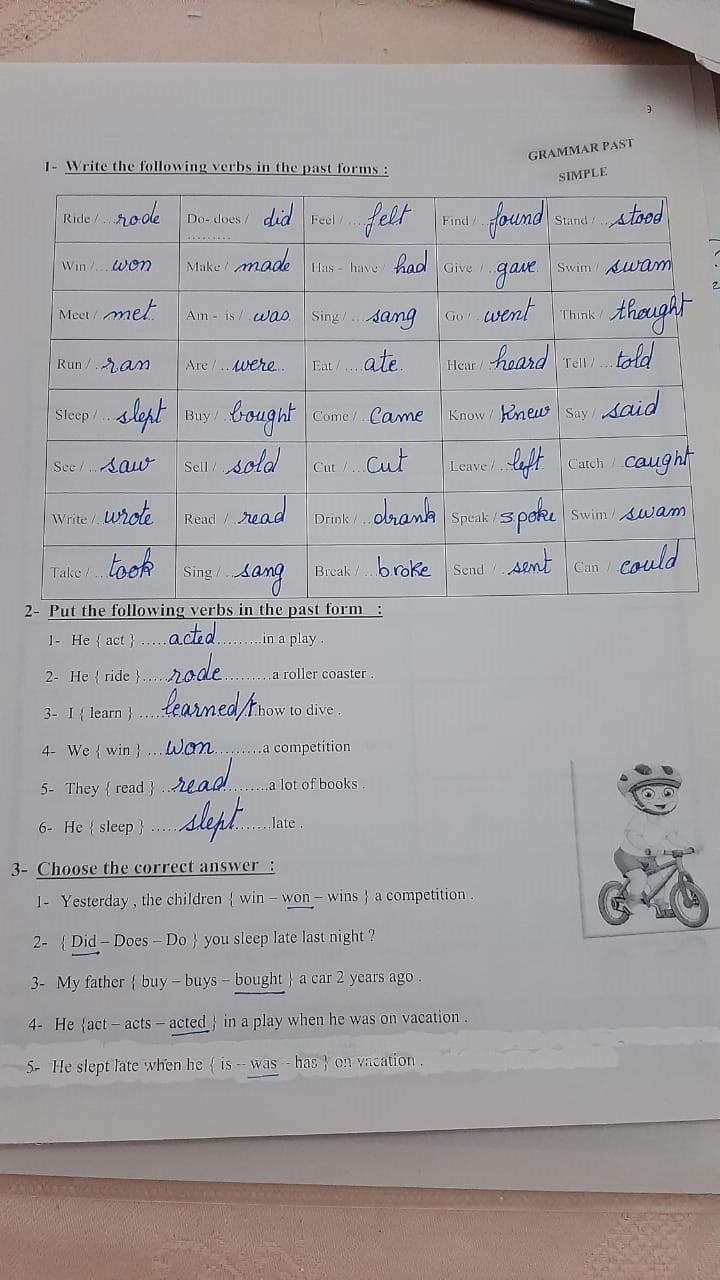 9
GRAMMAR PAST
SIMPLE
1- Write the following verbs in the past forms :
Ride / ... rode Do- does / did Feel / ... felt Find / .. found Stand / .. stood
.........
Win / ... won Make / made Has - have / had Give / . gave Swim / swam
Meet / met. Am - is / . was Sing / ... sang Go / . went Think / thought
Run / . ran Are / .. were.. Eat / .... ate. Hear / heard Tell / ... told
Sleep / ... slept Buy / . bought Come / . came Know / knew Say / said
See / .. saw Sell / . sold Cut / ... cut Leave / .. left Catch / caught
Write / . wrote Read / . read Drink / .. drank Speak / spoke Swim / swam
Take / ... took Sing / .. sang Break / .. broke Send / . sent Can / could
2- Put the following verbs in the past form :
1- He { act } ..... acted .........in a play .
2- He { ride }..... rode ..........a roller coaster .
3- I { learn } .... learned/t how to dive .
4- We { win } ... won.........a competition
5- They { read } .. read ........a lot of books .
6- He { sleep } ..... slept .......late .
3- Choose the correct answer :
1- Yesterday , the children { win – won – wins } a competition .
2- { Did – Does – Do } you sleep late last night ?
3- My father { buy – buys – bought } a car 2 years ago .
4- He {act – acts – acted } in a play when he was on vacation .
5- He slept late when he { is – was - has } on vacation .